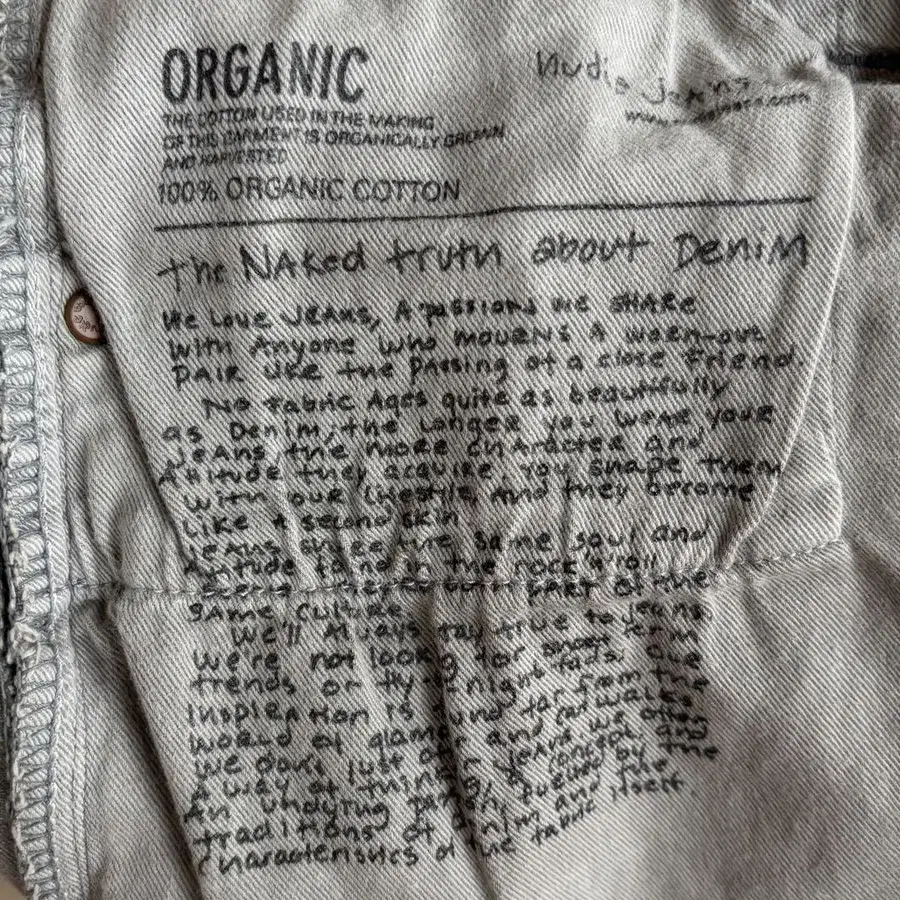 ORGANIC
THE COTTON USED IN THE MAKING
OF THIS GARMENT IS ORGANICALLY GROWN
AND HARVESTED
100% ORGANIC COTTON
Nudie Jeans
The NAKed truth about DeniM
We Love JEANS, A passion we sHARe
with Anyone who mourns A worn-out
pAIR like the pAssing of a close friend.
No fabric Ages quite as beautifully
as Denim, the Longer you weAR your
JeAns the more chARActer and
Attitude they acquire. You shape them
with your Lifestyle, And they become
Like A second skin
JeAns share the same soul and
Attitude found in the rock'n'roll
scene. They're both PART of the
SAMe culture
We'll Always stay true to jeans
we're not looking for short term
trends or fly night fads. Our
inspiration is found far from the
world of glamour and catwalks
We don't just jeans. we offer
A way of thinking, A concept and
An undying passion, fuelled by the
traditions of denim and the
characteristics of the fabric itself.